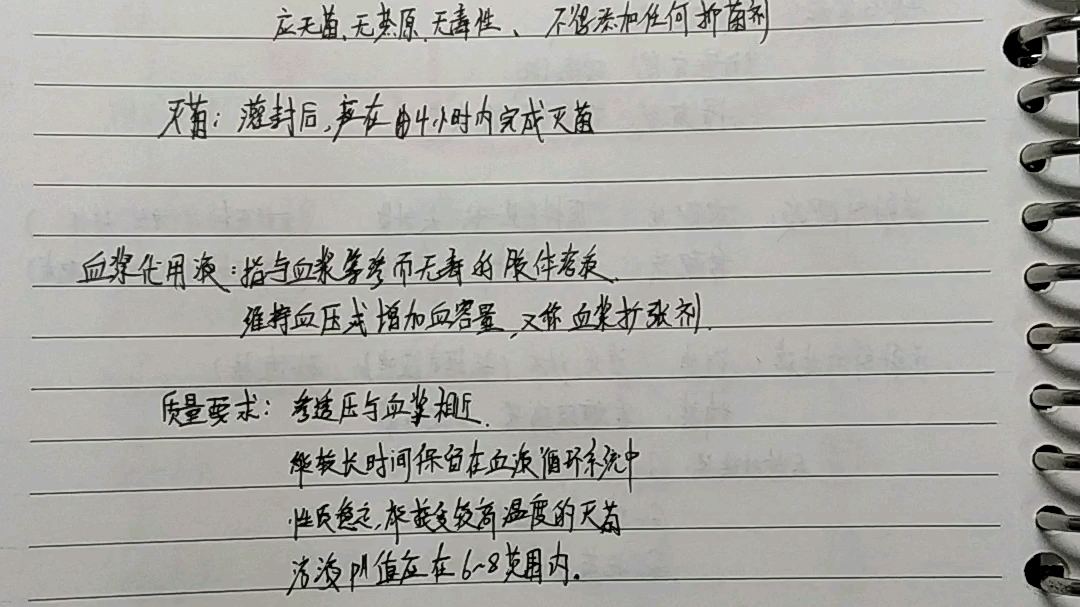 应无菌、无热原、无毒性、不得添加任何抑菌剂
灭菌：灌封后，应在4小时内完成灭菌
血浆代用液：指与血浆等渗而无毒的胶体溶液.
维持血压或增加血容量，又称血浆扩张剂.
质量要求：渗透压与血浆相近.
能较长时间保留在血液循环系统中
性质稳定，能接受较高温度的灭菌
溶液PH值应在6~8范围内。